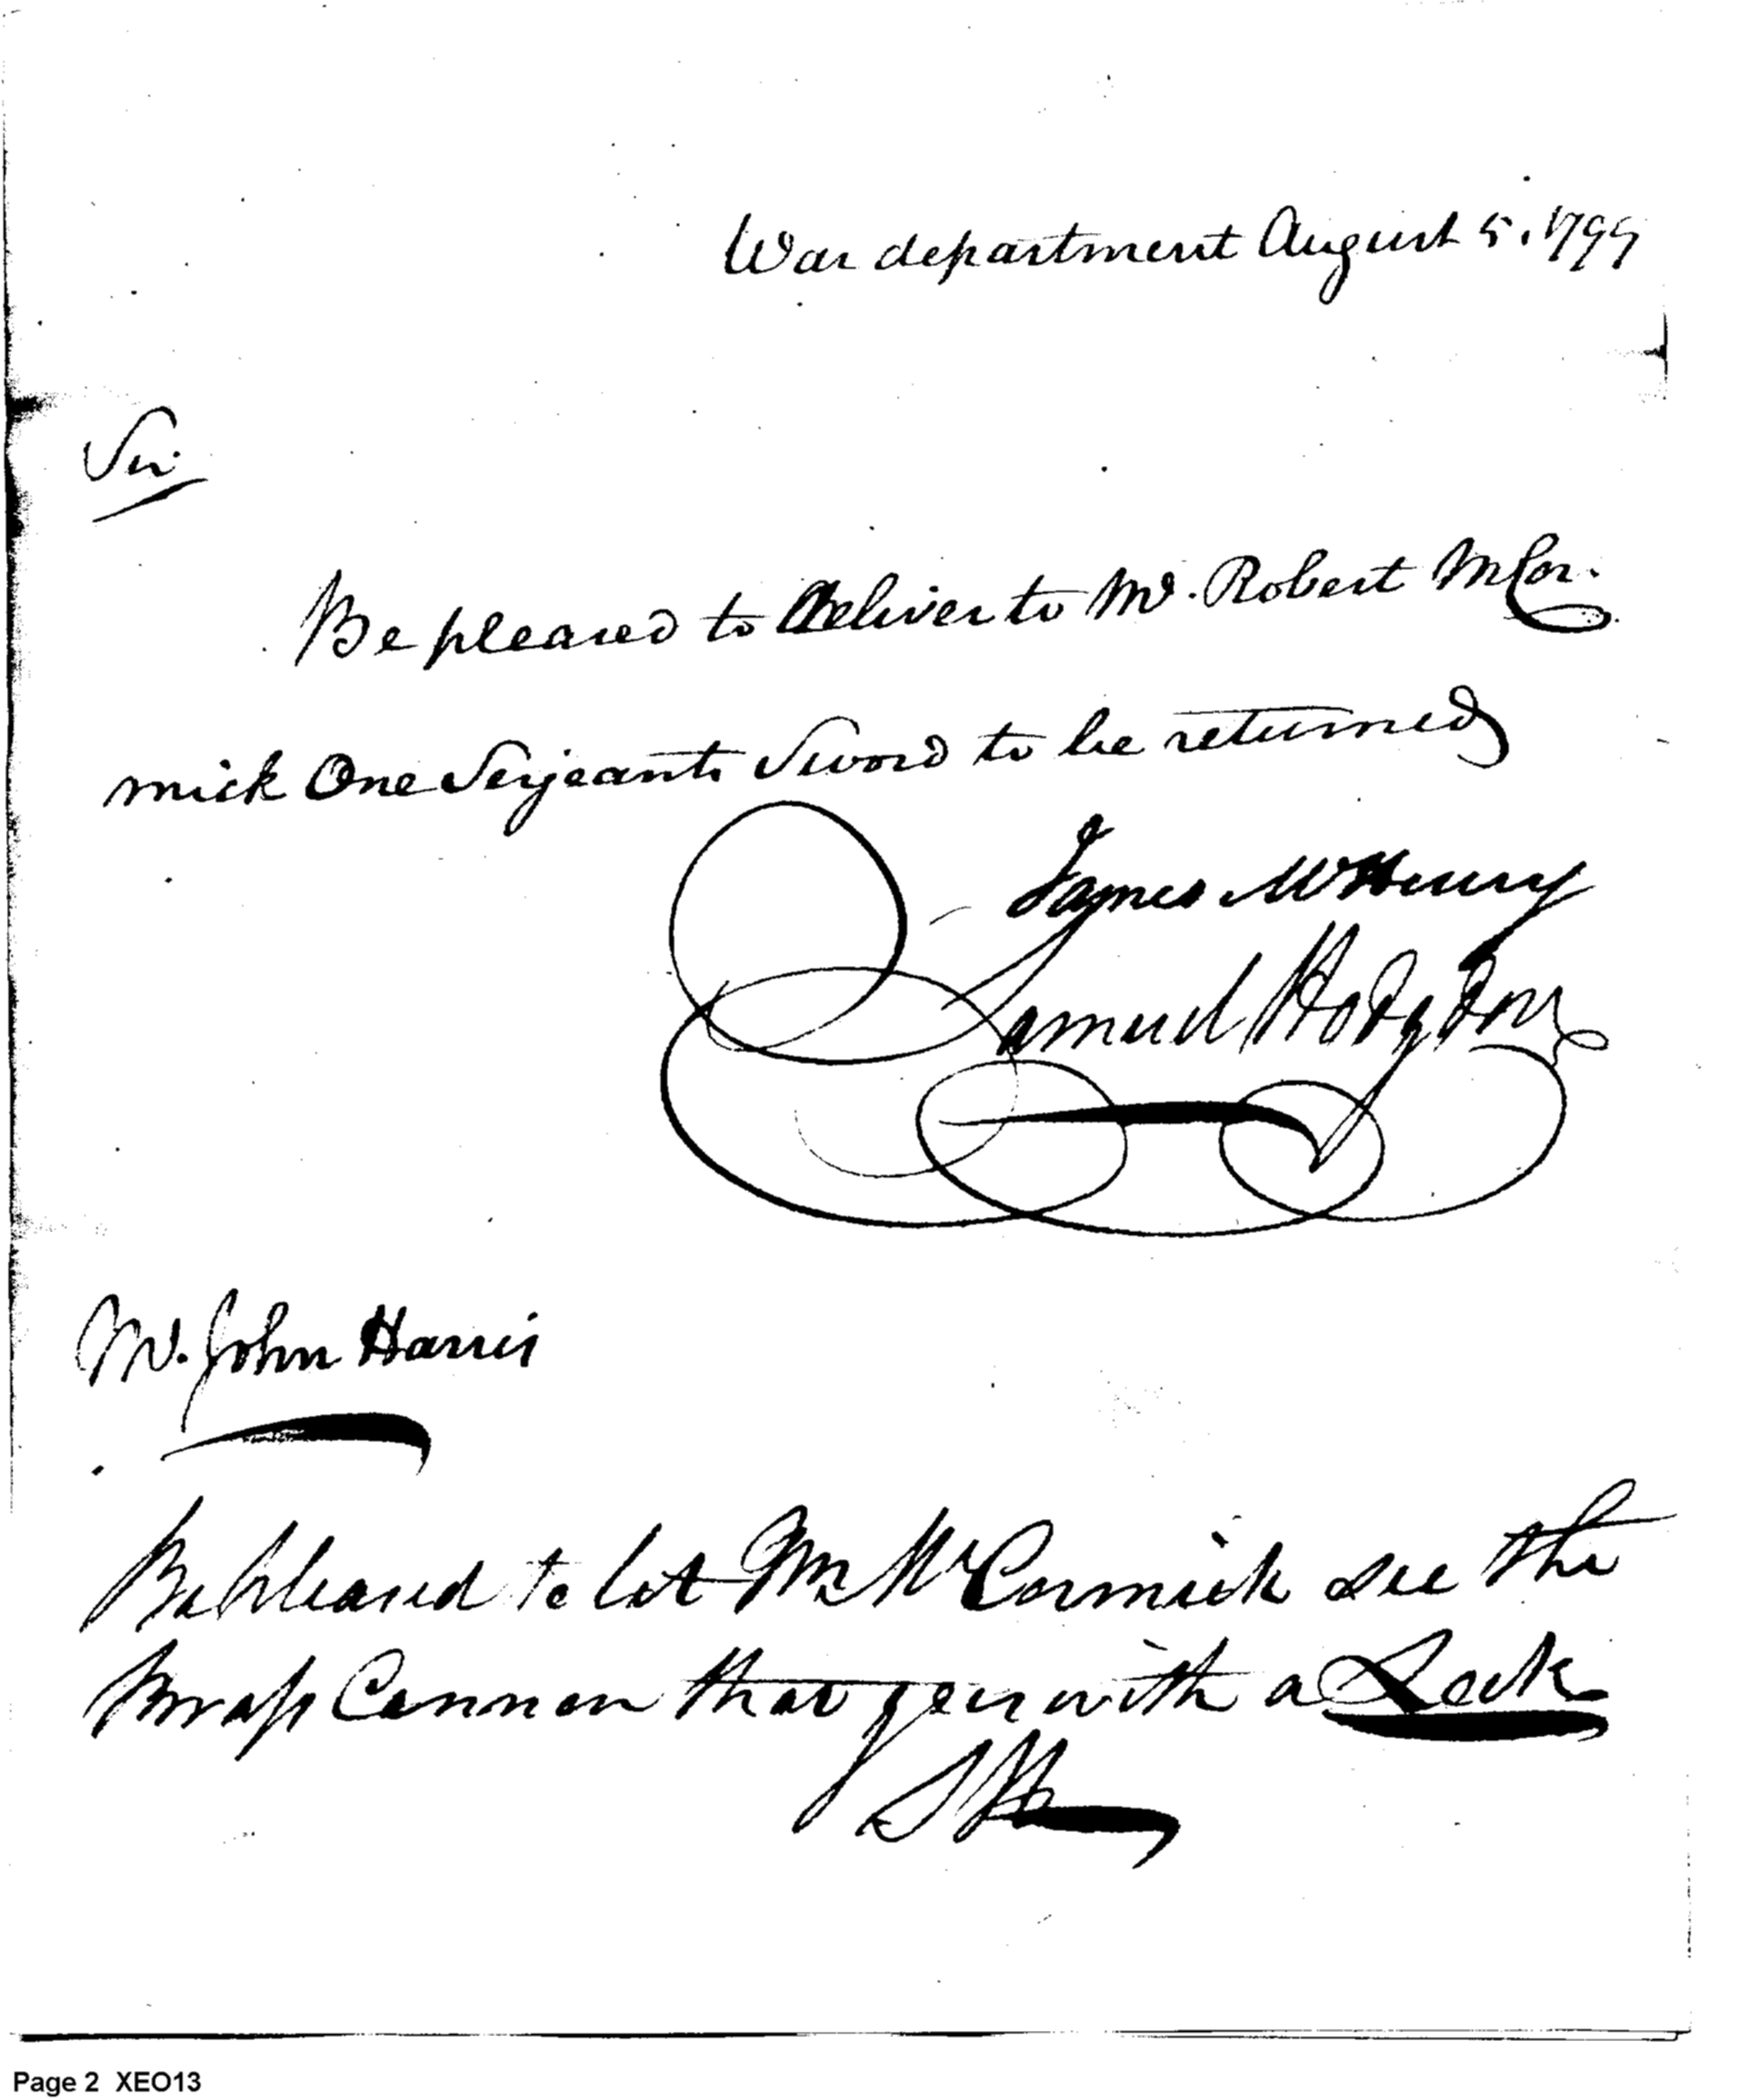 War department August 5. 1799
Sir.
Be pleased to deliver to Mr. Robert McCor-
mick One Serjeants Sword to be returned
James McHenry
Samuel Hodgdon
Mr. John Harris
Be pleased to let Mr McCormick see the
Brass Cannon that goes with a Lock
SH
Page 2 XEO13